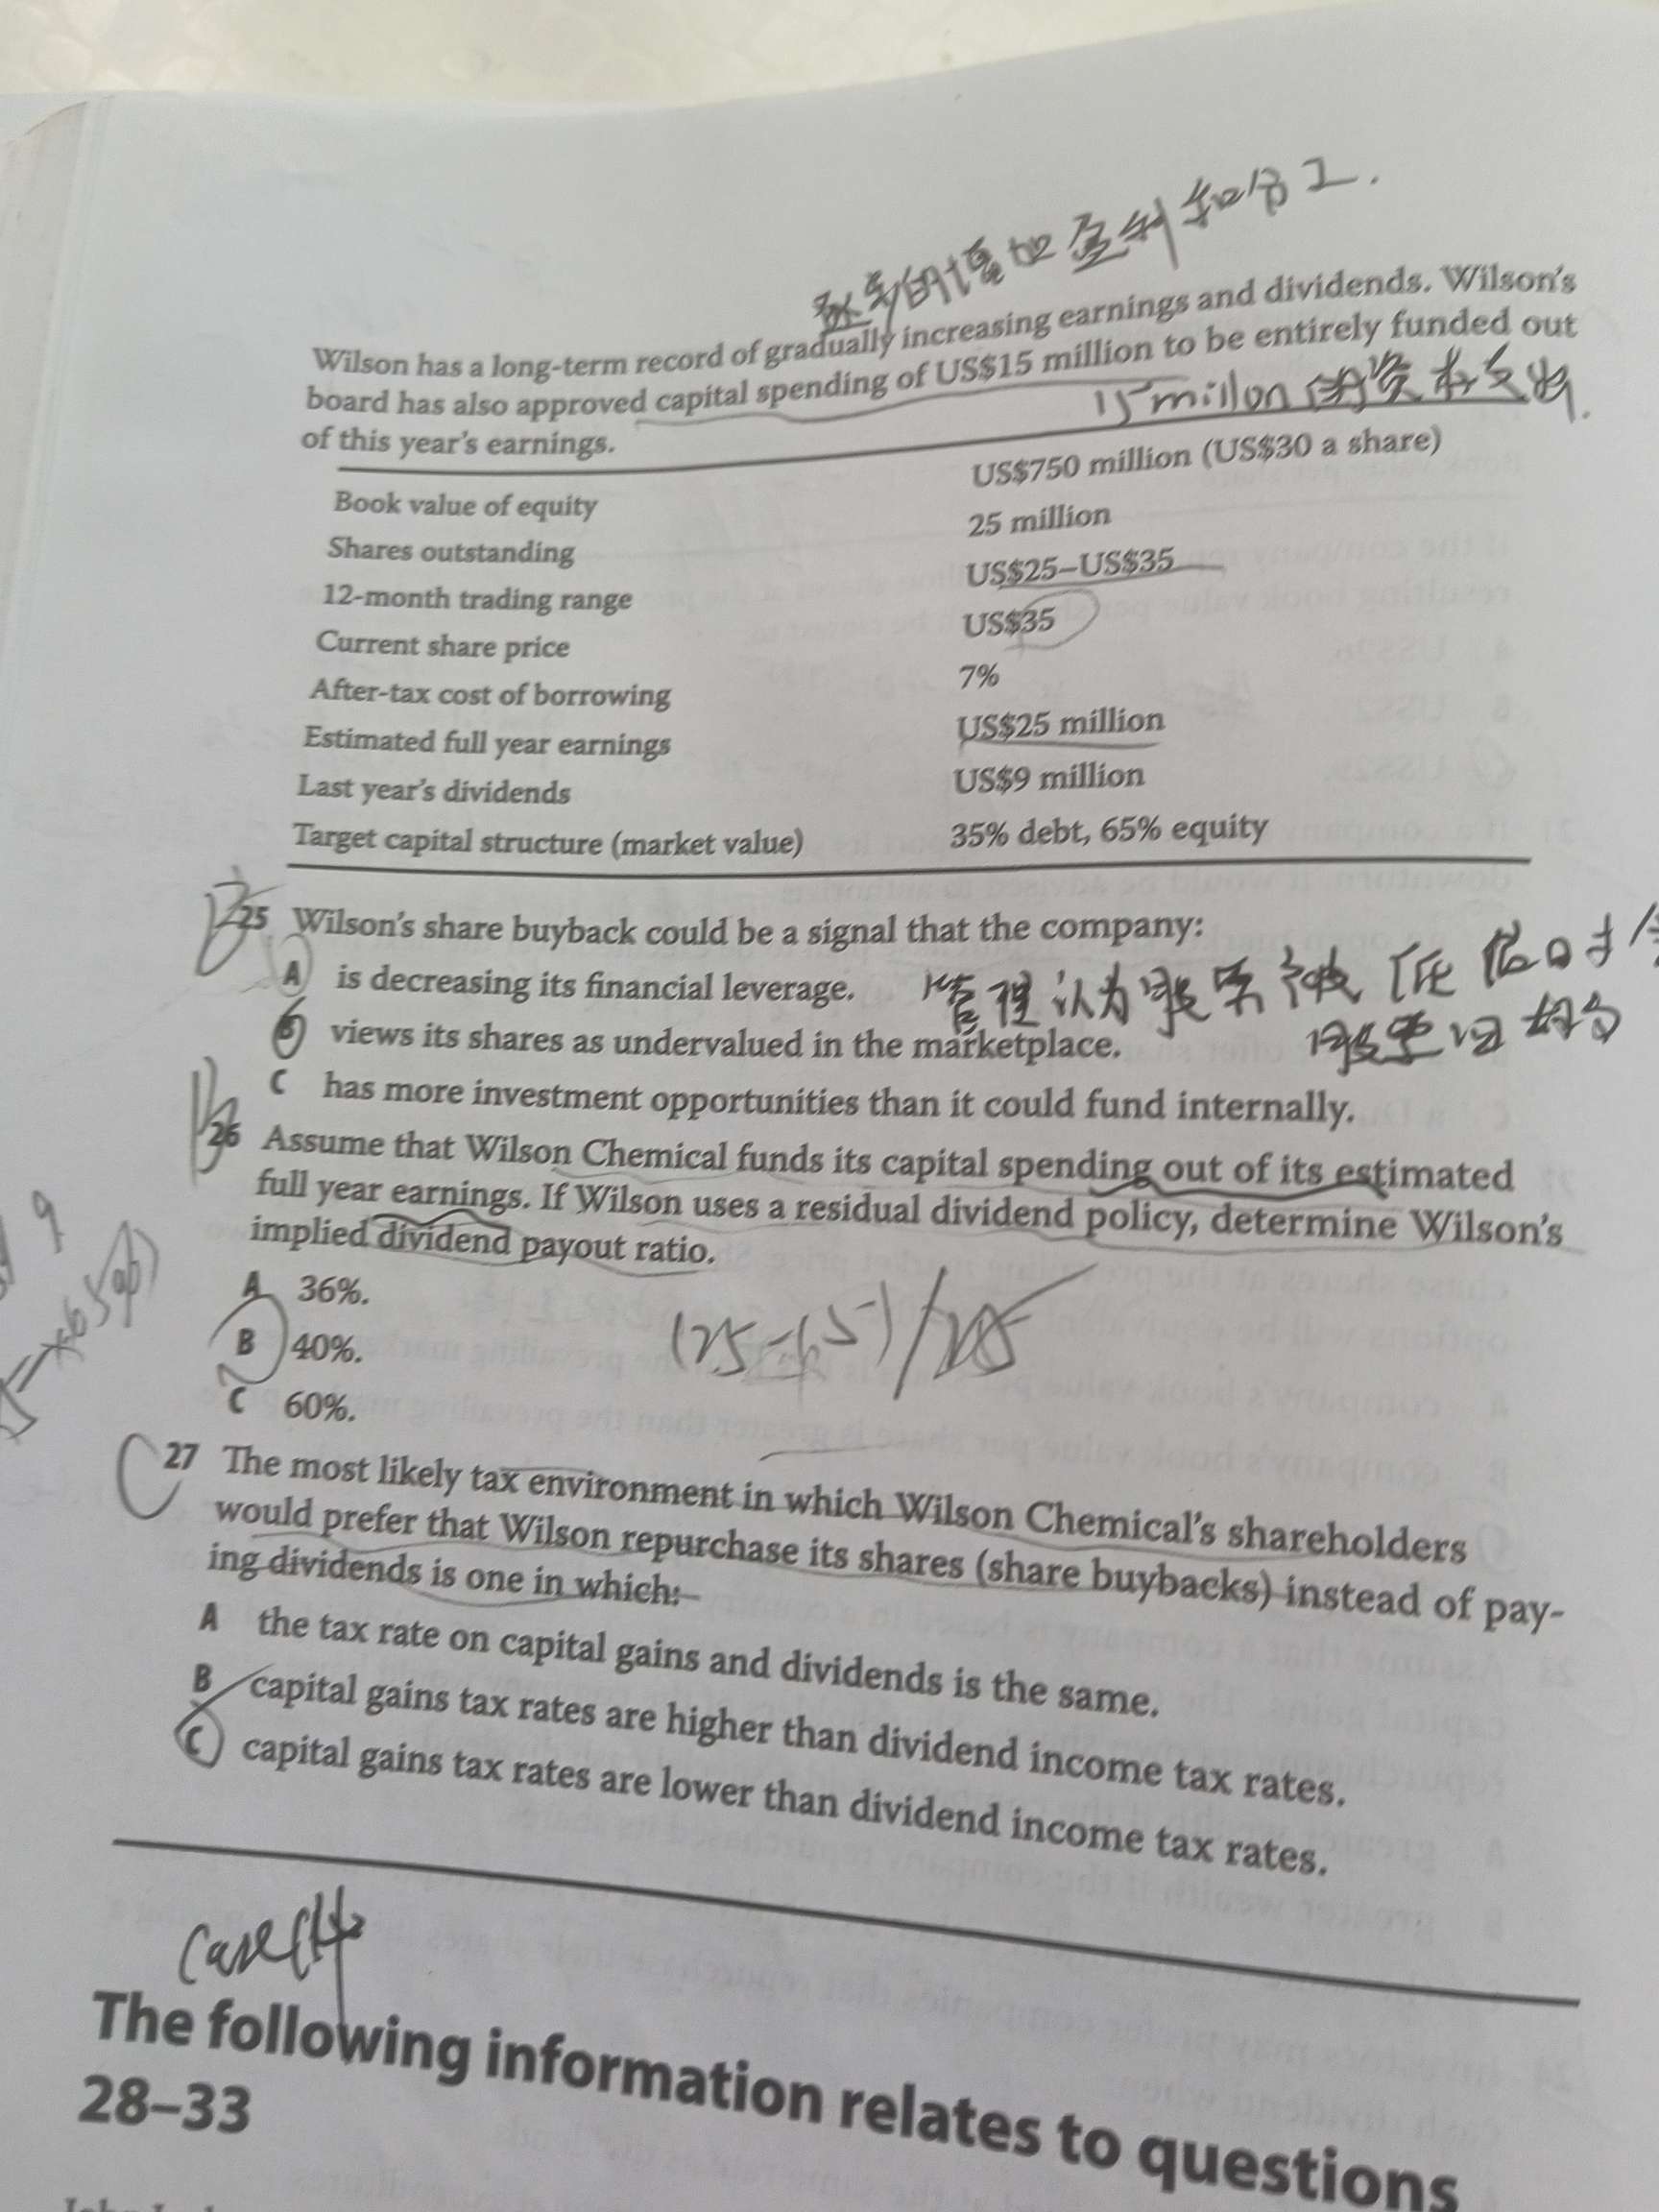 Wilson has a long-term record of gradually increasing earnings and dividends. Wilson's
board has also approved capital spending of US$15 million to be entirely funded out
15 millon 的资本支出.
of this year's earnings.
Book value of equity US$750 million (US$30 a share)
Shares outstanding 25 million
12-month trading range US$25–US$35
Current share price US$35
After-tax cost of borrowing 7%
Estimated full year earnings US$25 million
Last year's dividends US$9 million
Target capital structure (market value) 35% debt, 65% equity
25 Wilson's share buyback could be a signal that the company:
A is decreasing its financial leverage.
管理认为股票被低估时
B views its shares as undervalued in the marketplace.
C has more investment opportunities than it could fund internally.
26 Assume that Wilson Chemical funds its capital spending out of its estimated
full year earnings. If Wilson uses a residual dividend policy, determine Wilson's
implied dividend payout ratio.
A 36%.
B 40%.
(25-15)/25
C 60%.
27 The most likely tax environment in which Wilson Chemical's shareholders
would prefer that Wilson repurchase its shares (share buybacks) instead of pay-
ing dividends is one in which:
A the tax rate on capital gains and dividends is the same.
B capital gains tax rates are higher than dividend income tax rates.
C capital gains tax rates are lower than dividend income tax rates.
The following information relates to questions
28–33